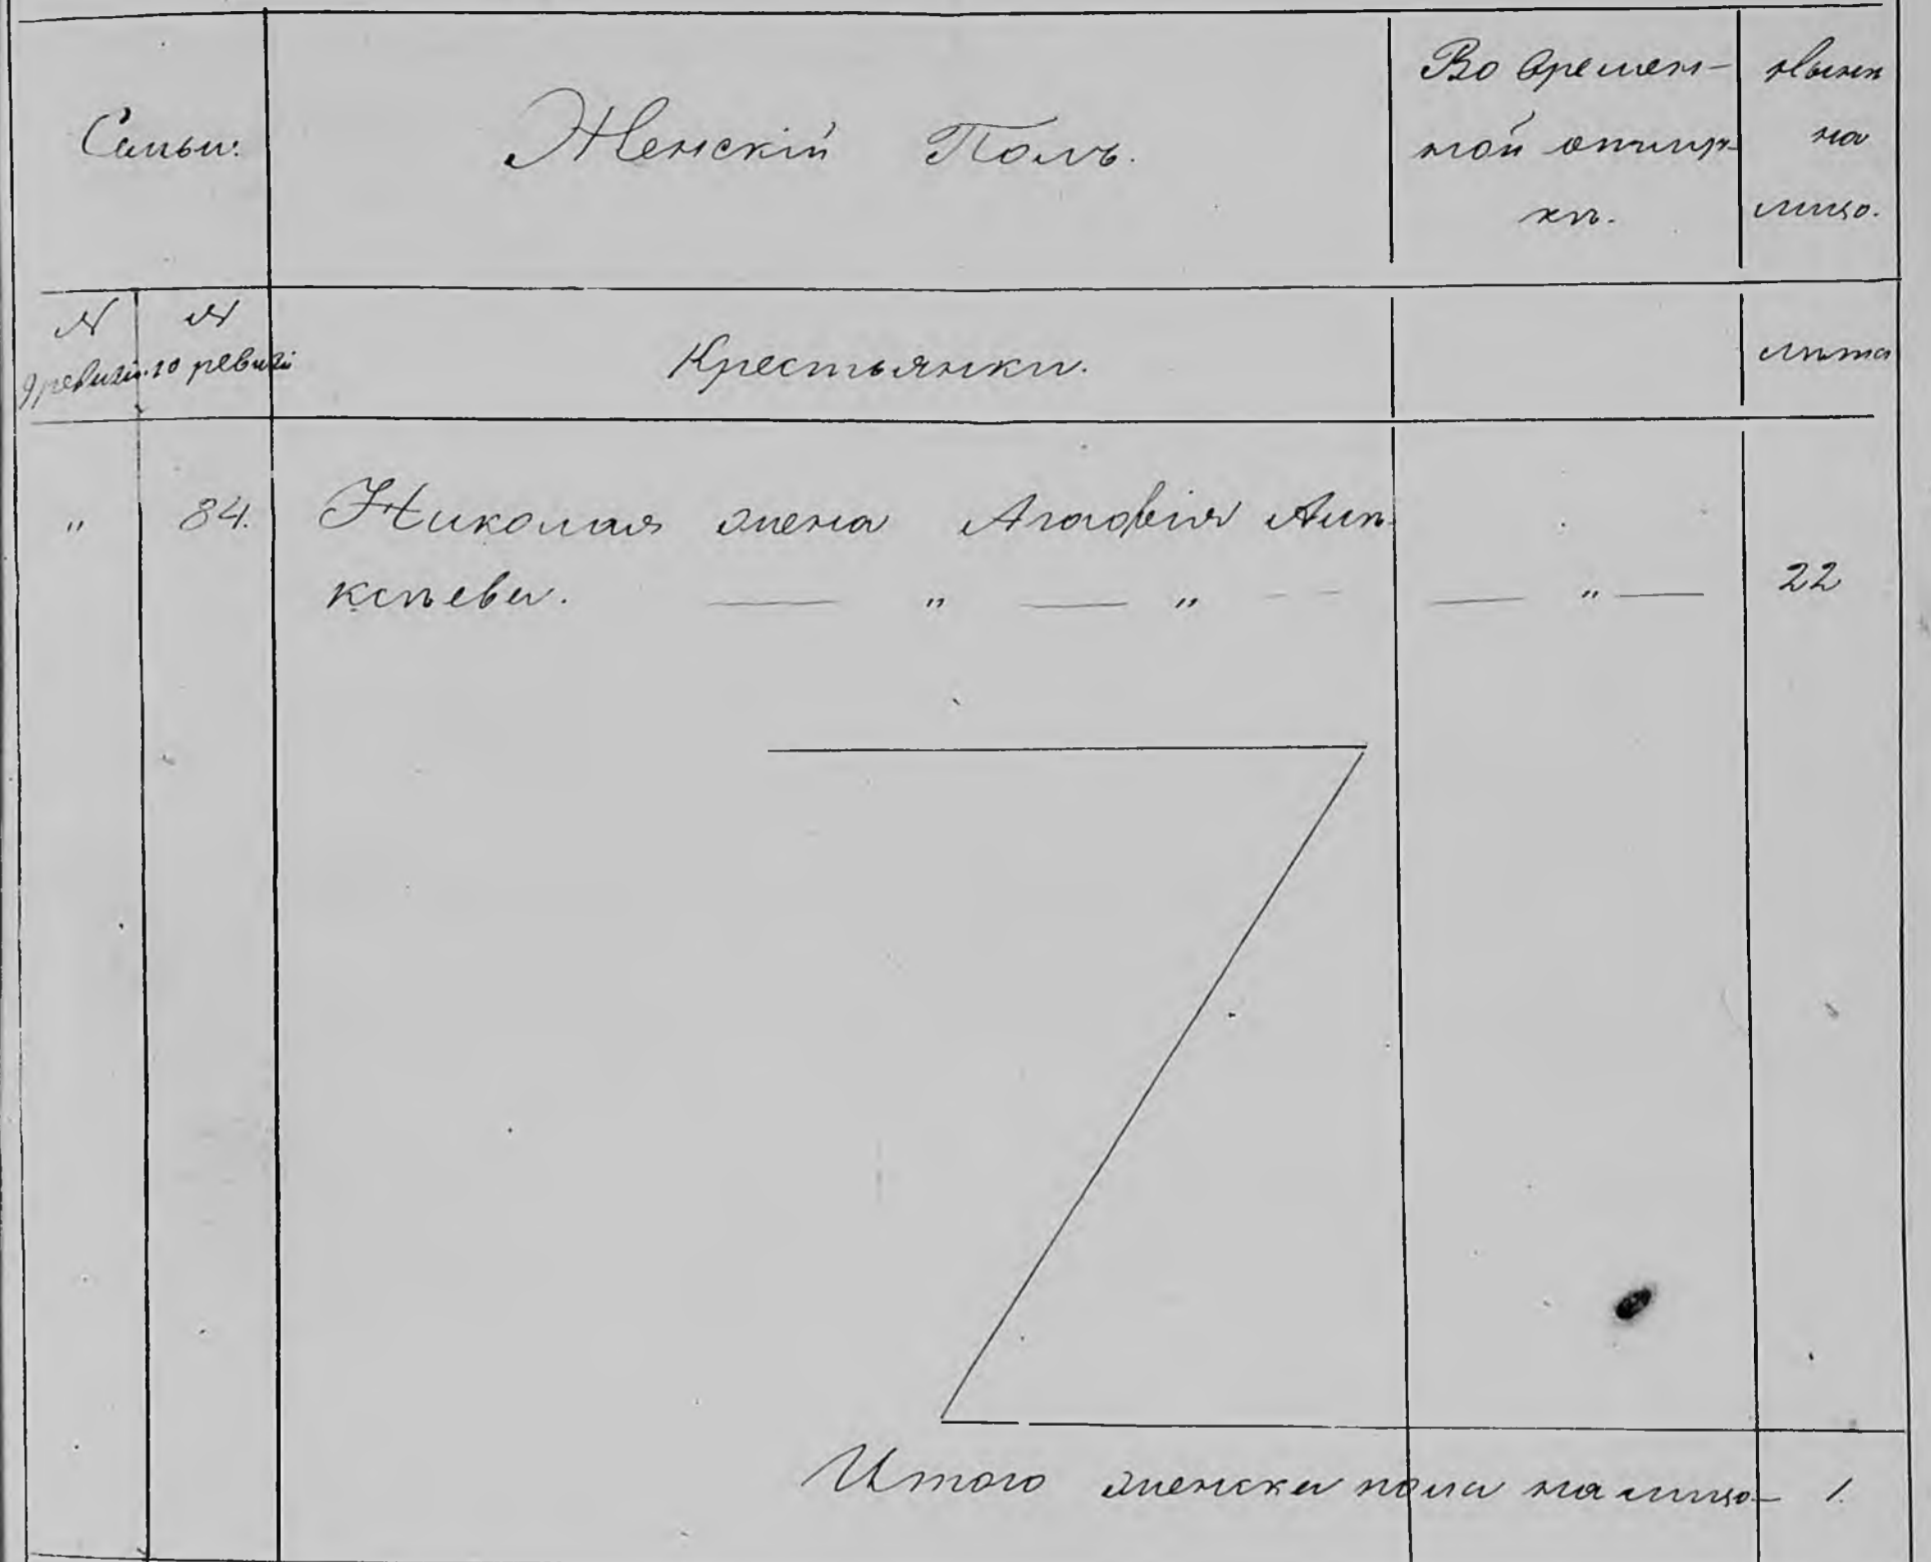 Семьи.
Женскій Полъ.
Во времен-
ной отлуч-
кѣ.
Нынѣ
на
лицо.
№
9 ревизіи.
№
10 ревизіи
Крестьянки.
лѣта
" 84. Николая жена Агафія Але-
ксѣева. — " — " — — " — 22
Итого женска пола на лицо — 1.